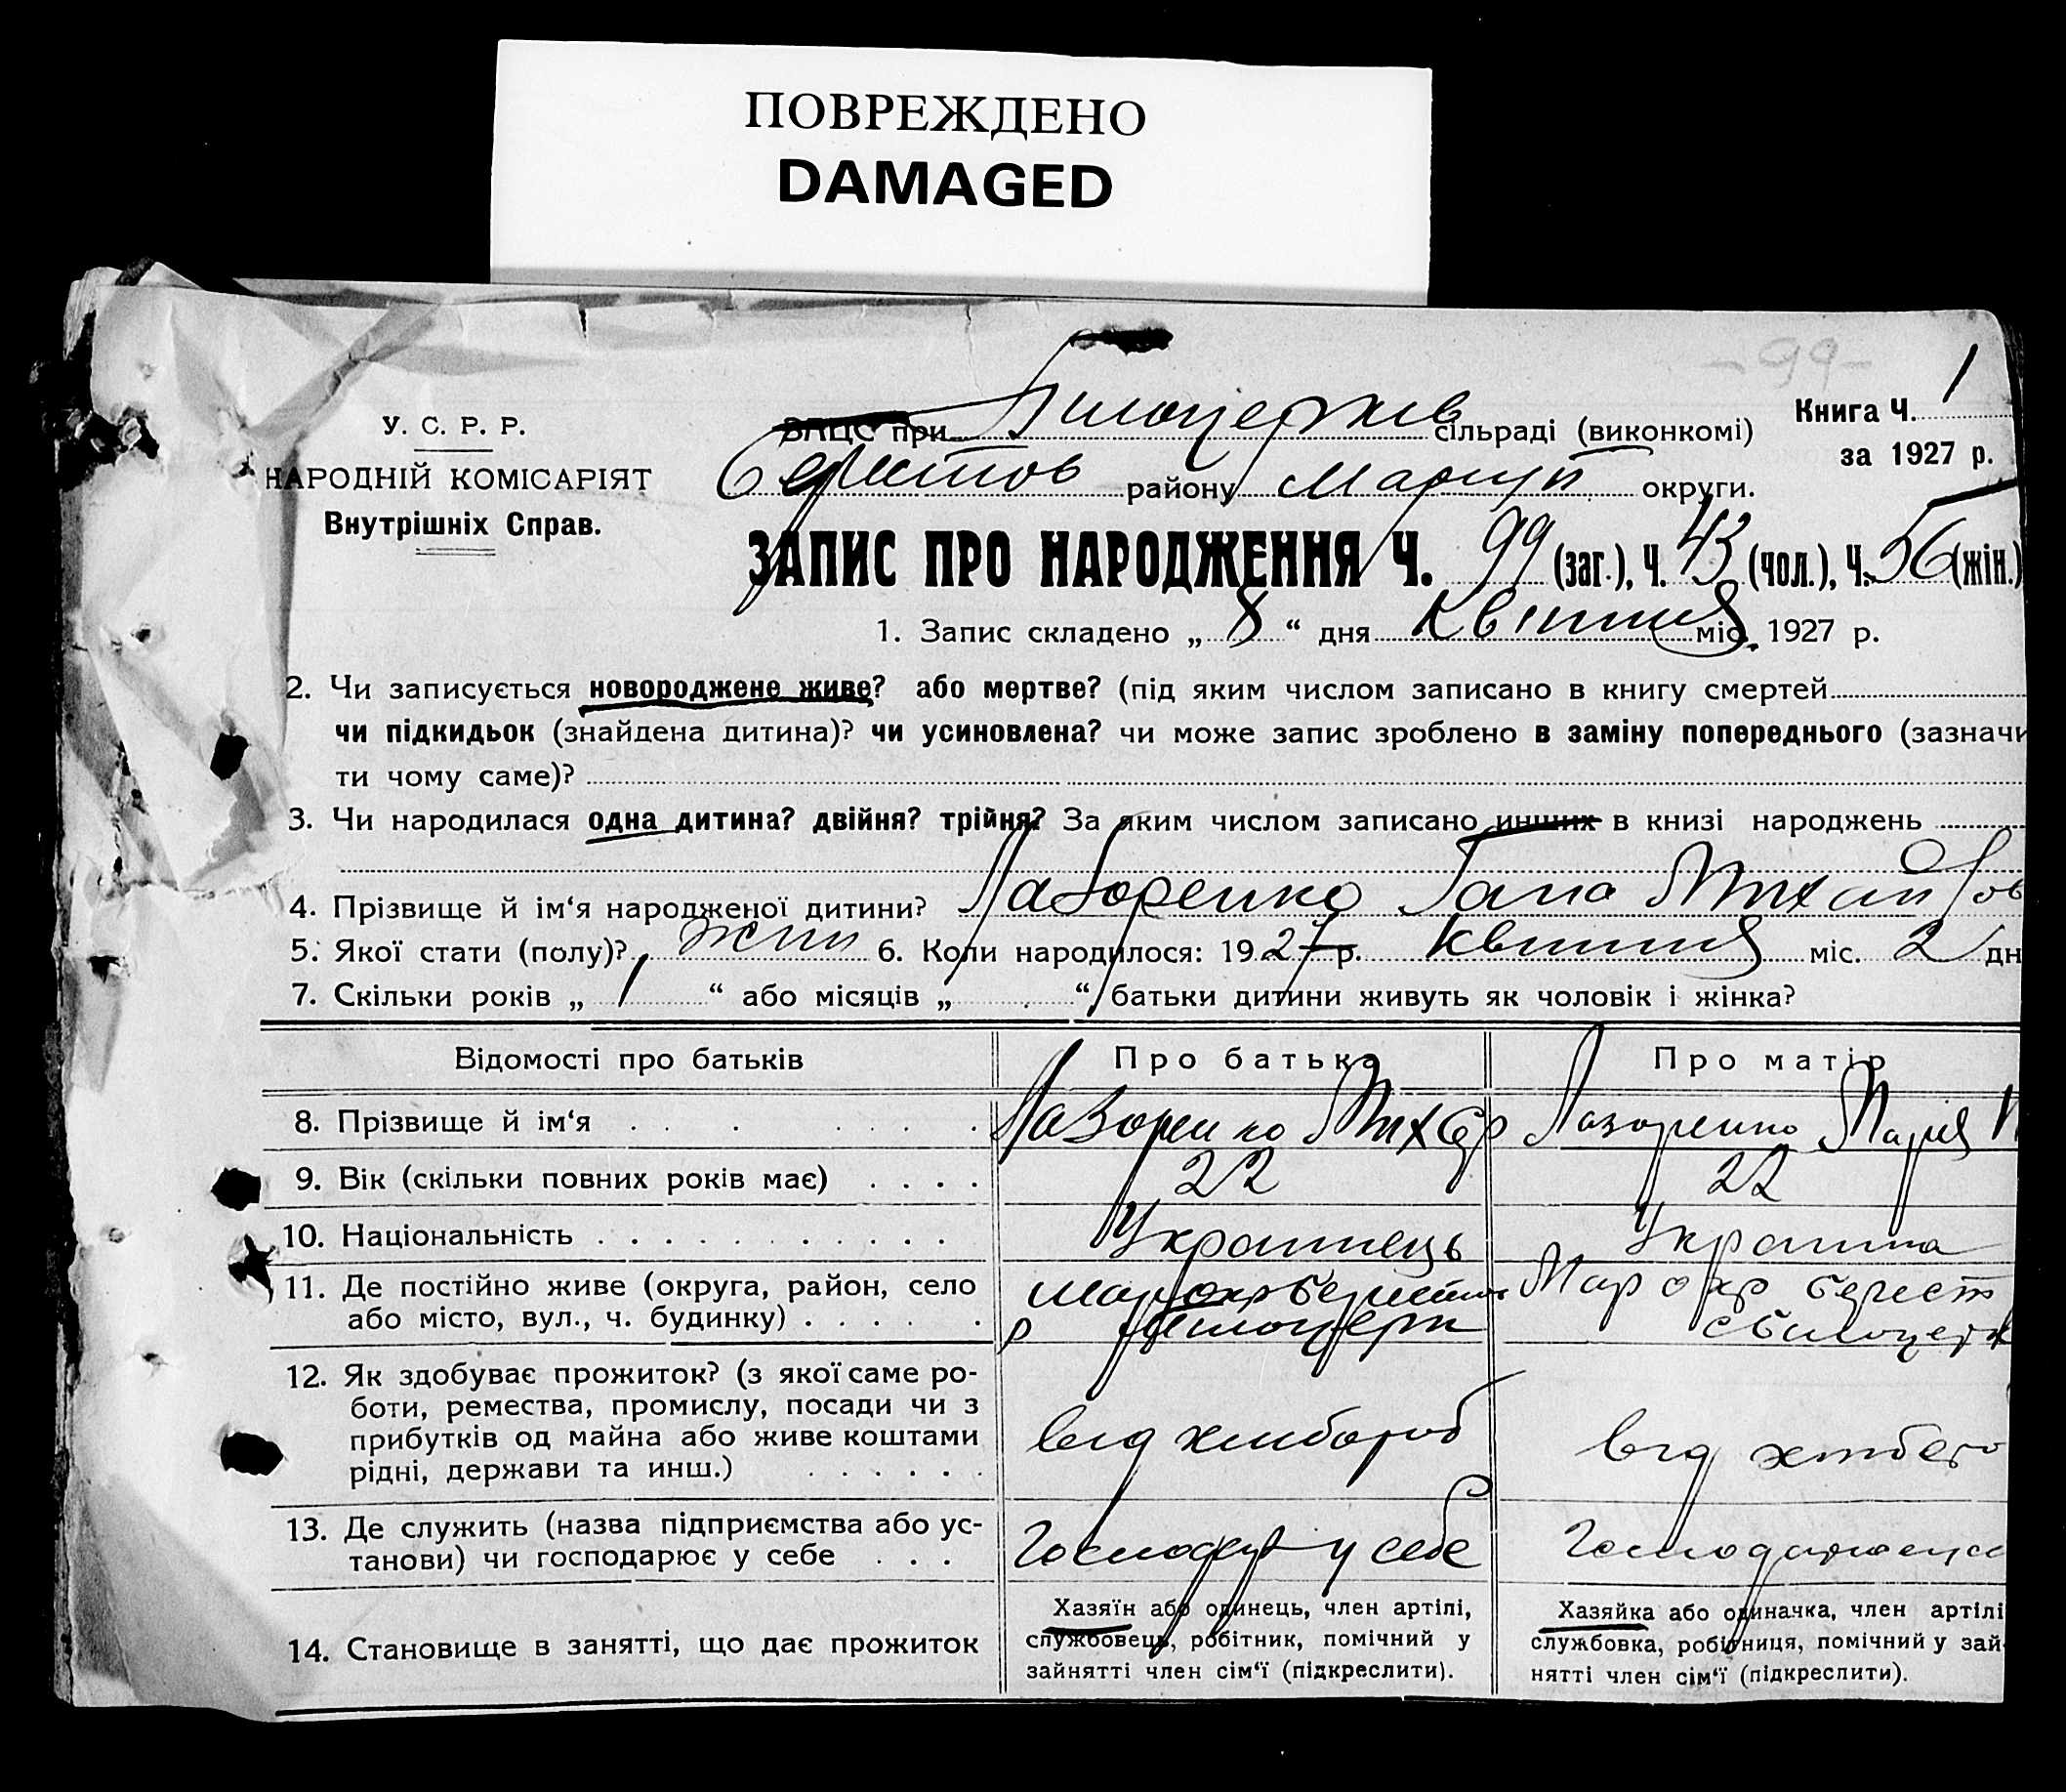 ПОВРЕЖДЕНО
DAMAGED
-99-
У. С. Р. Р.
НАРОДНІЙ КОМІСАРІЯТ
Внутрішніх Справ.
ЗАЦС при Білоцерків сільраді (виконкомі)
Книга Ч. 1
за 1927 р.
району Маріуп округи.
ЗАПИС ПРО НАРОДЖЕННЯ Ч. 99 (заг.), Ч. 43 (чол.), Ч. 56 (жін.)
1. Запис складено „ 8 “ дня Квітня міс. 1927 р.
2. Чи записується новороджене живе? або мертве? (під яким числом записано в книгу смертей
чи підкидьок (знайдена дитина)? чи усиновлена? чи може запис зроблено в заміну попереднього (зазначи
ти чому саме)?
3. Чи народилася одна дитина? двійня? трійня? За яким числом записано инших в книзі народжень
4. Прізвище й ім‘я народженої дитини? Лазоренко Гана Михайлов
5. Якої стати (полу)? жін 6. Коли народилося: 1927 р. Квітня міс. 2 дн
7. Скільки років „ 1 “ або місяців „ “, батьки дитини живуть як чоловік і жінка?
Відомості про батьків Про батька Про матір
8. Прізвище й ім‘я Лазоренко Лазоренко Марія
9. Вік (скільки повних років має) 22 22
10. Національність Українець Українка
11. Де постійно живе (округа, район, село Мар окр Берестов Мар окр Берест
або місто, вул., ч. будинку) р Билоцерк с Билоцерк
12. Як здобуває прожиток? (з якої саме ро-
боти, ремества, промислу, посади чи з
прибутків од майна або живе коштами від хлібороб від
рідні, держави та инш.)
13. Де служить (назва підприємства або ус-
танови) чи господарює у себе Господар у себе
Хазяїн або одинець, член артілі, Хазяйка або одиначка, член артілі
14. Становище в занятті, що дає прожиток службовець, робітник, помічний у службовка, робітниця, помічний у зай-
зайнятті член сім‘ї (підкреслити). нятті член сім‘ї (підкреслити).